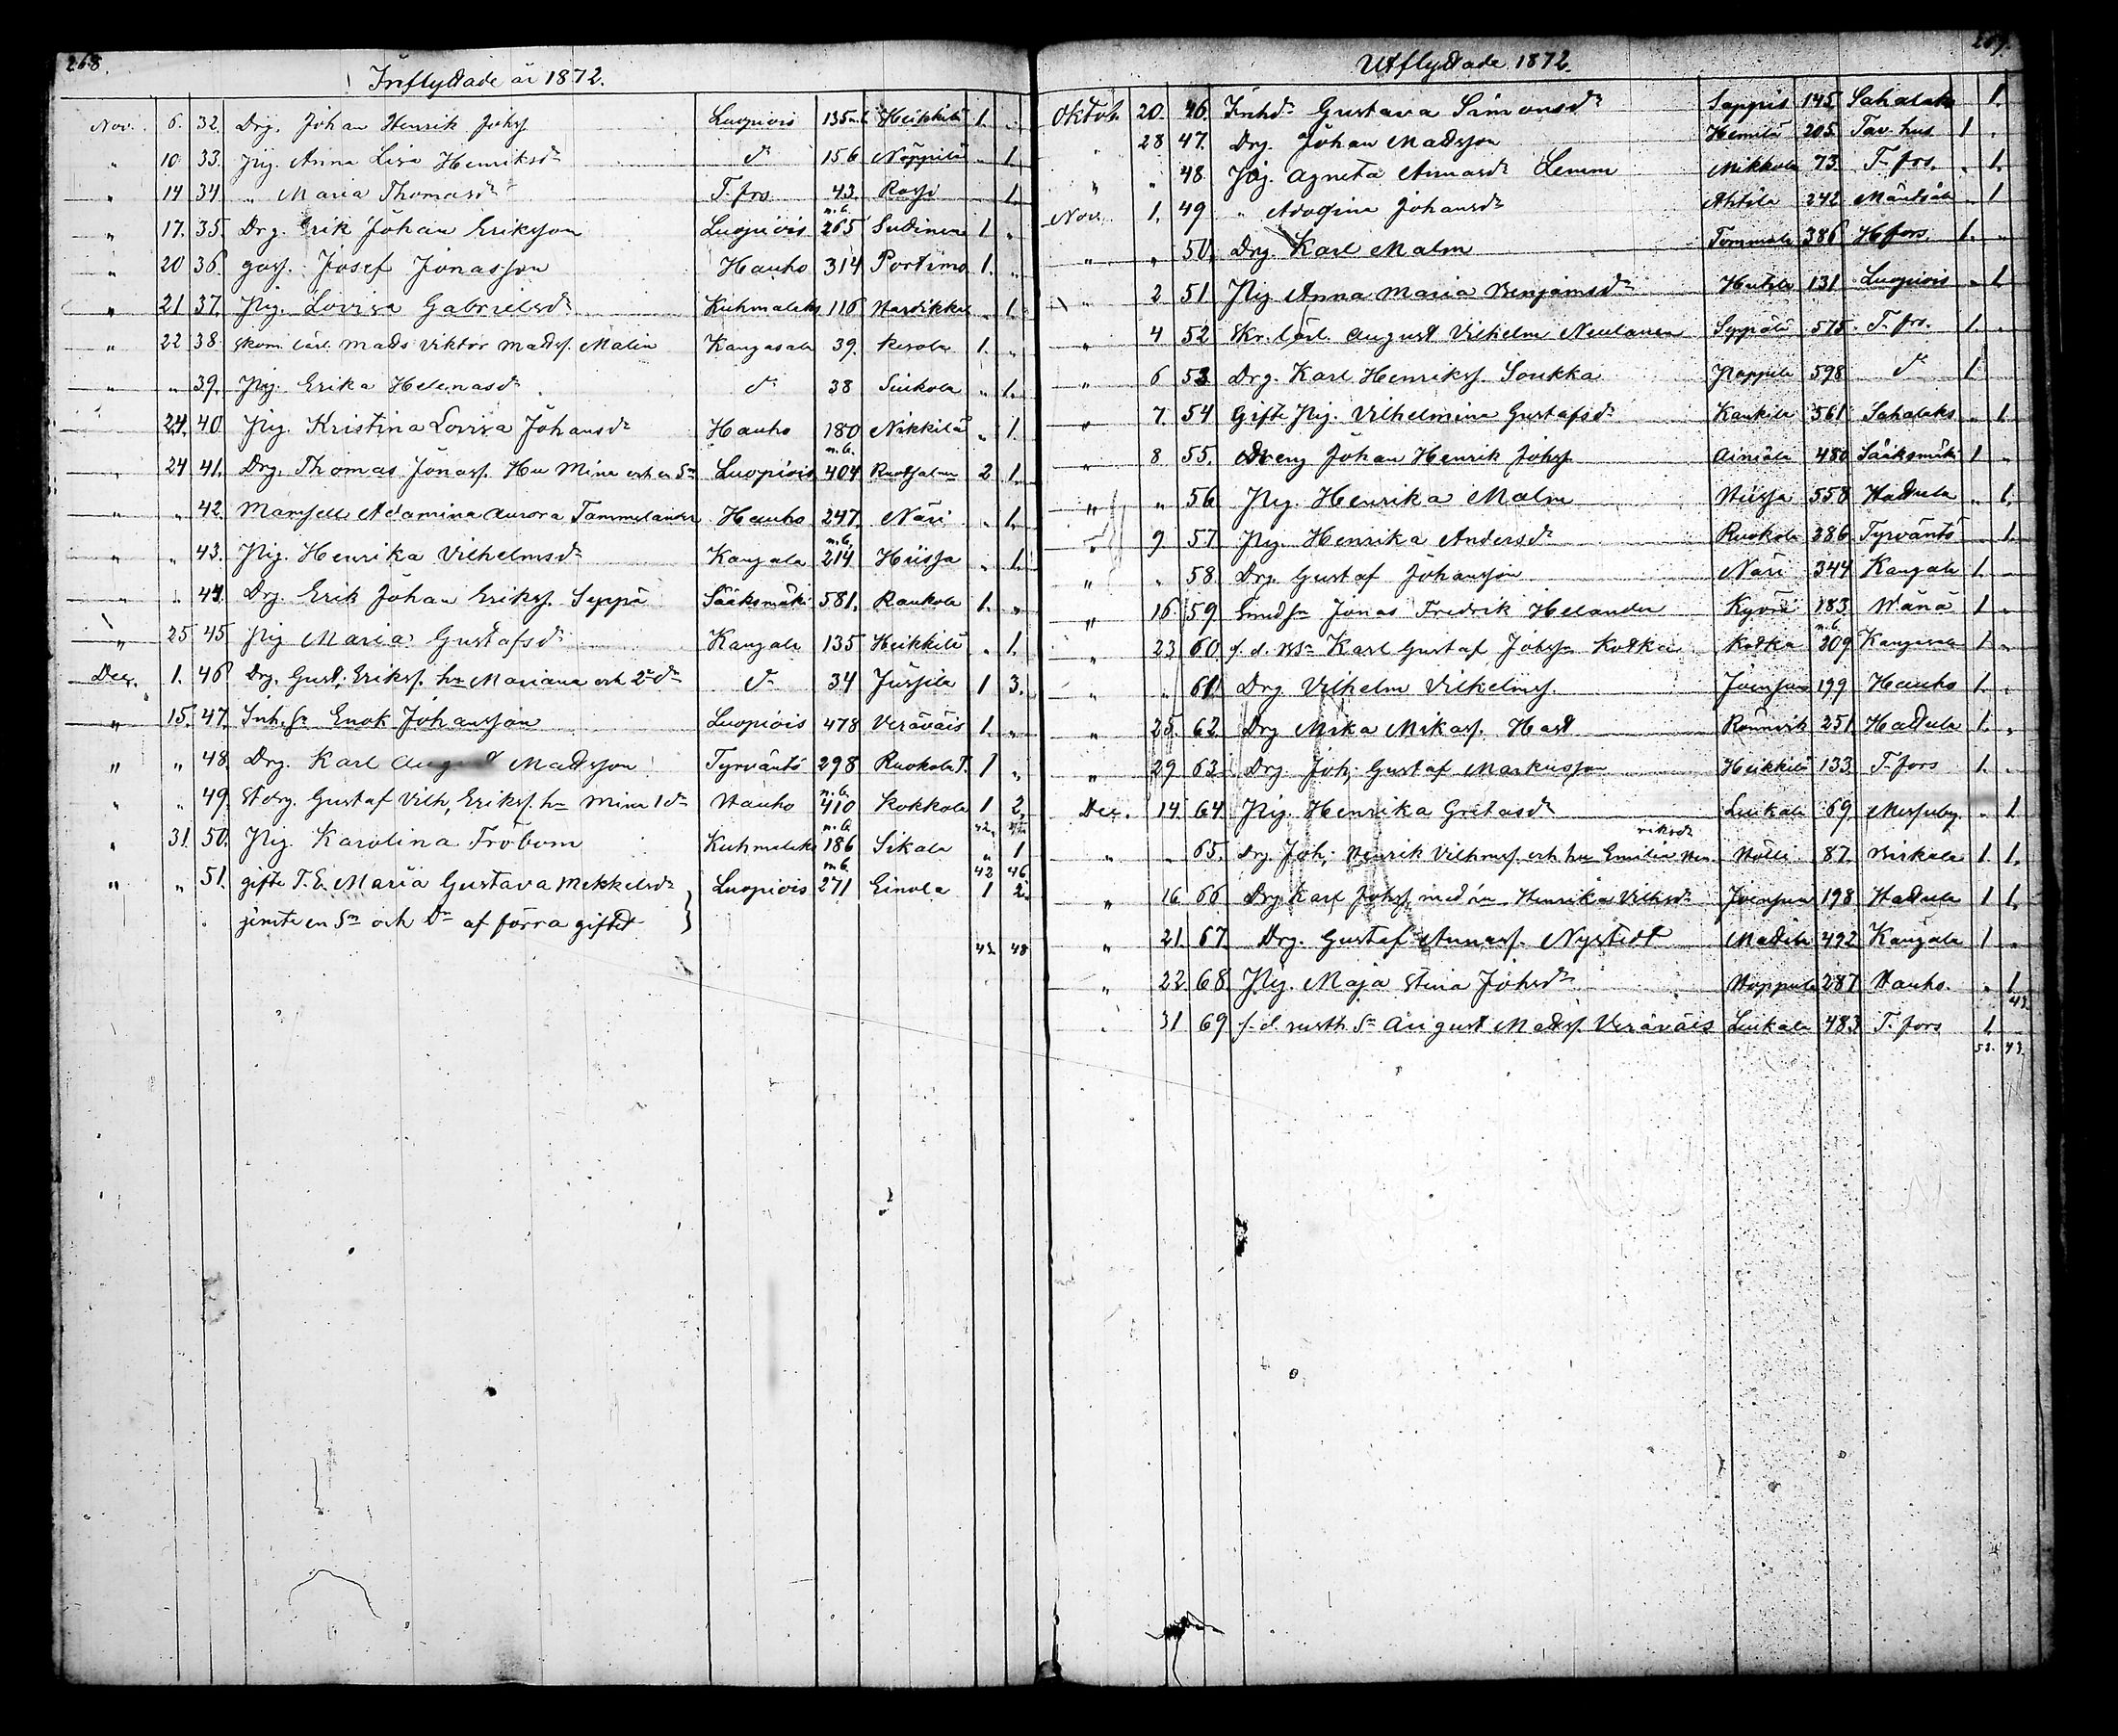 268.
Inflyttade år 1872.
Nov. 6. 32. Drg. Johan Henrik Johsf Luopiois 135 Heikkilä 1. "
" 10 33. Pig. Anna Lisa Henriksdr do 156 Nappila " 1.
" 14 34 " Maria Thomasdr T. fors 43. Rossi 1.
" 17. 35. Drg. Erik Johan Eriksson Luopiois m.b. 265 Sudinen 1 "
" 20 36. goss. Josef Jonasson Hauho 314 Portimo 1. "
" 21 37. Pig. Lovisa Gabrielsdr Kuhmalaks 116 " 1
" 22 38. skom. lärl. Matts Viktor Mattsf. Malin Kangasala 39. Kerola 1. "
" " 39. Pig. Erika Helenasdr do 38 Siukola " 1.
24. 40. Pig. Kristina Lovisa Johansdr Hauho 180 Nikkilä " 1.
" 24 41. Drg. Thomas Jonasf. Hu Mina och en Sn Luopiois m.b. 404 2 1.
" " 42. Mamsell Adamina Aurora Tammelander Hauho 247. Näri " 1.
" " 43. Pig. Henrika Vilhelmsdr Kangala m.b. 214 Hiissa " 1.
" " 44. Drg. Erik Johan Eriksf. Seppä Sääksmäki 581. Raukola 1. "
" 25 45 Pig Maria Gustafsdr Kangala 135 Heikkilä " 1.
Dec. 1. 46 Drg. Gust. Eriksf. hu Mariana och 2 dr do 34 Jussila 1 3.
" 15. 47. Inh. Sn Enok Johansson Luopiois 478 Veräväis 1. "
" " 48. Drg. Karl August Mattsson Tyrväntö 298 Ruokola T. 1 "
" " 49. Stdrg. Gustaf Vilh. Eriksf. hu Mina 1 dr Hauho m.b. 410 Kokkola 1 2.
" 31. 50. Pig. Karolina Fröbom Kuhmalaks m.b. 186 Sikala " 1
42 46
" " 51. gifte T. E. Maria Gustava Mekkelsdr Luopiois m.b. 271 Einola 1 2.
jemte en Sn och Dr af förra giftet }
43 48
Utflyttade 1872.
Oktob. 20. 46. Inhdr Gustava Simonsdr Sappis 145. Sahalaks 1.
" 28 47. Drg. Johan Mattsson Hemilä 205. Tav. hus 1 "
" " 48. Pig. Agneta Annasdr Lemm Mikkola 73. T. fors. " 1.
Nov. 1. 49 " Johansdr Ahtila 242 Mäntsälä " 1
" " 50. Drg. Karl Malm Tommola 386 Hfors. 1. "
" 2 51 Pig Anna Maria Benjamsdr 131 Luopiois " 1
" 4 52 Skr. lärl. August Vilhelm Neulanen Seppälä 575. T. frs. 1. "
" 6 53 Drg. Karl Henriksf. Soukka Nappila 598 do 1
" 7. 54 Gifte Pig. Vilhelmina Gustafsdr Kaukila 561 Sahalaks " 1.
" 8 55. Dreng Johan Henrik Johsf Ainiala 480 Sääksmäki 1 "
" " 56 Pig. Henrika Malm Hiissa 558 Hattula " 1.
" 9. 57. Pig. Henrika Andersdr Ruokola 386 Tyrväntö 1
" " 58. Drg. Gustaf Johansson Näri 344 Kangala 1.
" 16 59 Smedsn Jonas Fredrik Helander Kyörä 183. Wånå 1 "
" 23 60. f. d. Karl Gustaf Johssn Kotka Kotka m.b. 209 Kangasala 1. "
" " 61. Drg Vilhelm Vilhelmsf. 199 Hauho 1. "
" 25. 62. Drg Mika Mikasf. Hast Rönnvik 251. Hattula 1. "
" 29 63. Drg Joh. Gustaf Markusson Heikkilä 133. T. fors 1. "
Dec. 14. 64 Pig. Henrika Gretasdr Luikala 69. " 1
" " 65. Drg. Joh. Henrik Vilhmsf. och hu Emilia Henriksdr 87. Birkala 1. 1.
" 16 66 Drg Karl Johsf. med hu Henrika Vilhsdr 198 Hattula 1 1.
" 21. 67. Drg. Gustaf Annasf. Nystedt Mattila 492 Kangala 1 "
" 22. 68. Pig. Maja Stina Johsdr 287 Hauho. " 1
43
31 69 f. d. rusth. Sn August Mattsf. Veräväis Luikala 483 T. fors 1.
43.